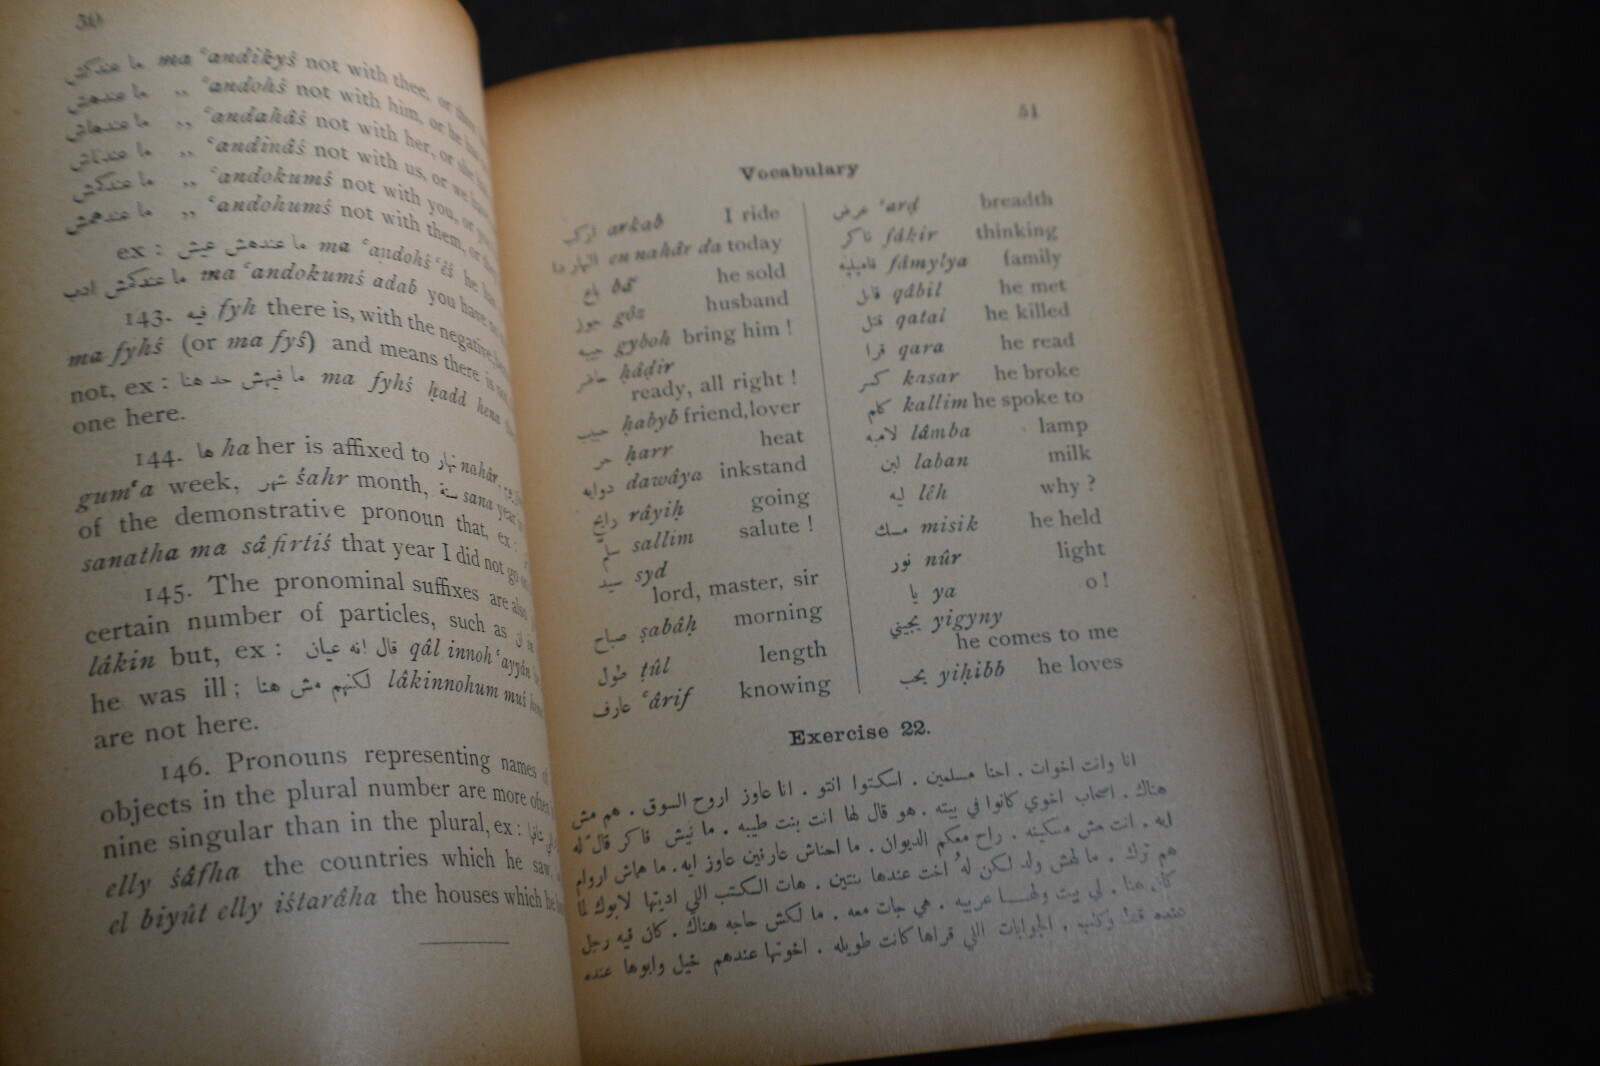 50
ما عندكش ma ʿandikyś not with thee, or
ما عندهش ,, ʿandohś not with him, or he
ما عندهاش ,, ʿandahâś not with her, or she
ما عندناش ,, ʿandinâś not with us, or we
ما عندكش ,, ʿandokumś not with you, or
ما عندهمش ,, ʿandohumś not with them, or
ex : ما عندهش عيش ma ʿandohś ʿêś he
ما عندكش ادب ma ʿandokumś adab you have
143. فيه fyh there is, with the negative,
ma fyhś (or ma fyś) and means there is
not, ex : ما فيهش حد هنا ma fyhś ḥadd hena
one here.
144. ها ha her is affixed to نهار nahâr,
gumʿa week, شهر śahr month, سنة sana year
of the demonstrative pronoun that, ex :
sanatha ma sâfirtiś that year I did not go
145. The pronominal suffixes are also
certain number of particles, such as ان
lâkin but, ex : قال انه عيان qâl innoh ʿayyân
he was ill ; لكنهم مش هنا lâkinnohum muś hena
are not here.
146. Pronouns representing names
objects in the plural number are more often
nine singular than in the plural, ex :
elly śâfha the countries which he saw,
el biyût elly iśtarâha the houses which he
51
Vocabulary
اركب arkab I ride
النهار دا en nahâr da today
باع bâʿ he sold
جوز gôz husband
جيبه gyboh bring him !
حاضر ḥâḍir
ready, all right !
حبيب ḥabyb friend, lover
حر ḥarr heat
دوايه dawâya inkstand
رايح râyiḥ going
سلّم sallim salute !
سيد syd
lord, master, sir
صباح ṣabâḥ morning
طول ṭûl length
عارف ʿârif knowing
عرض ʿarḍ breadth
فاكر fâkir thinking
فاميليه fâmylya family
قابل qâbil he met
قتل qatal he killed
قرا qara he read
كسر kasar he broke
كلم kallim he spoke to
لامبه lâmba lamp
لبن laban milk
ليه lêh why ?
مسك misik he held
نور nûr light
يا ya o !
يجيني yigyny
he comes to me
يحب yiḥibb he loves
Exercise 22.
انا وانت اخوات . احنا مسلمين . اسكتوا انتو . انا عاوز اروح السوق . هم مش
هناك . اصحاب اخوي كانوا في بيته . هو قال لها انت بنت طيبه . ما نيش فاكر قال له
ايه . انت مش مسكينه . راح معكم الديوان . ما احناش عارفين عاوز ايه . ما هماش اروام
هم ترك . ما لهش ولد لكن له اخت عندها بنتين . هات الكتب اللي اديتها لابوك لما
كان هنا . لي بيت ولهسا عربيه . هي جات معه . ما لكش حاجه هناك . كان فيه رجل
عنده قط وكلب . الجوابات اللي قراها كانت طويله . اخوتها عندهم خيل وابوها عنده